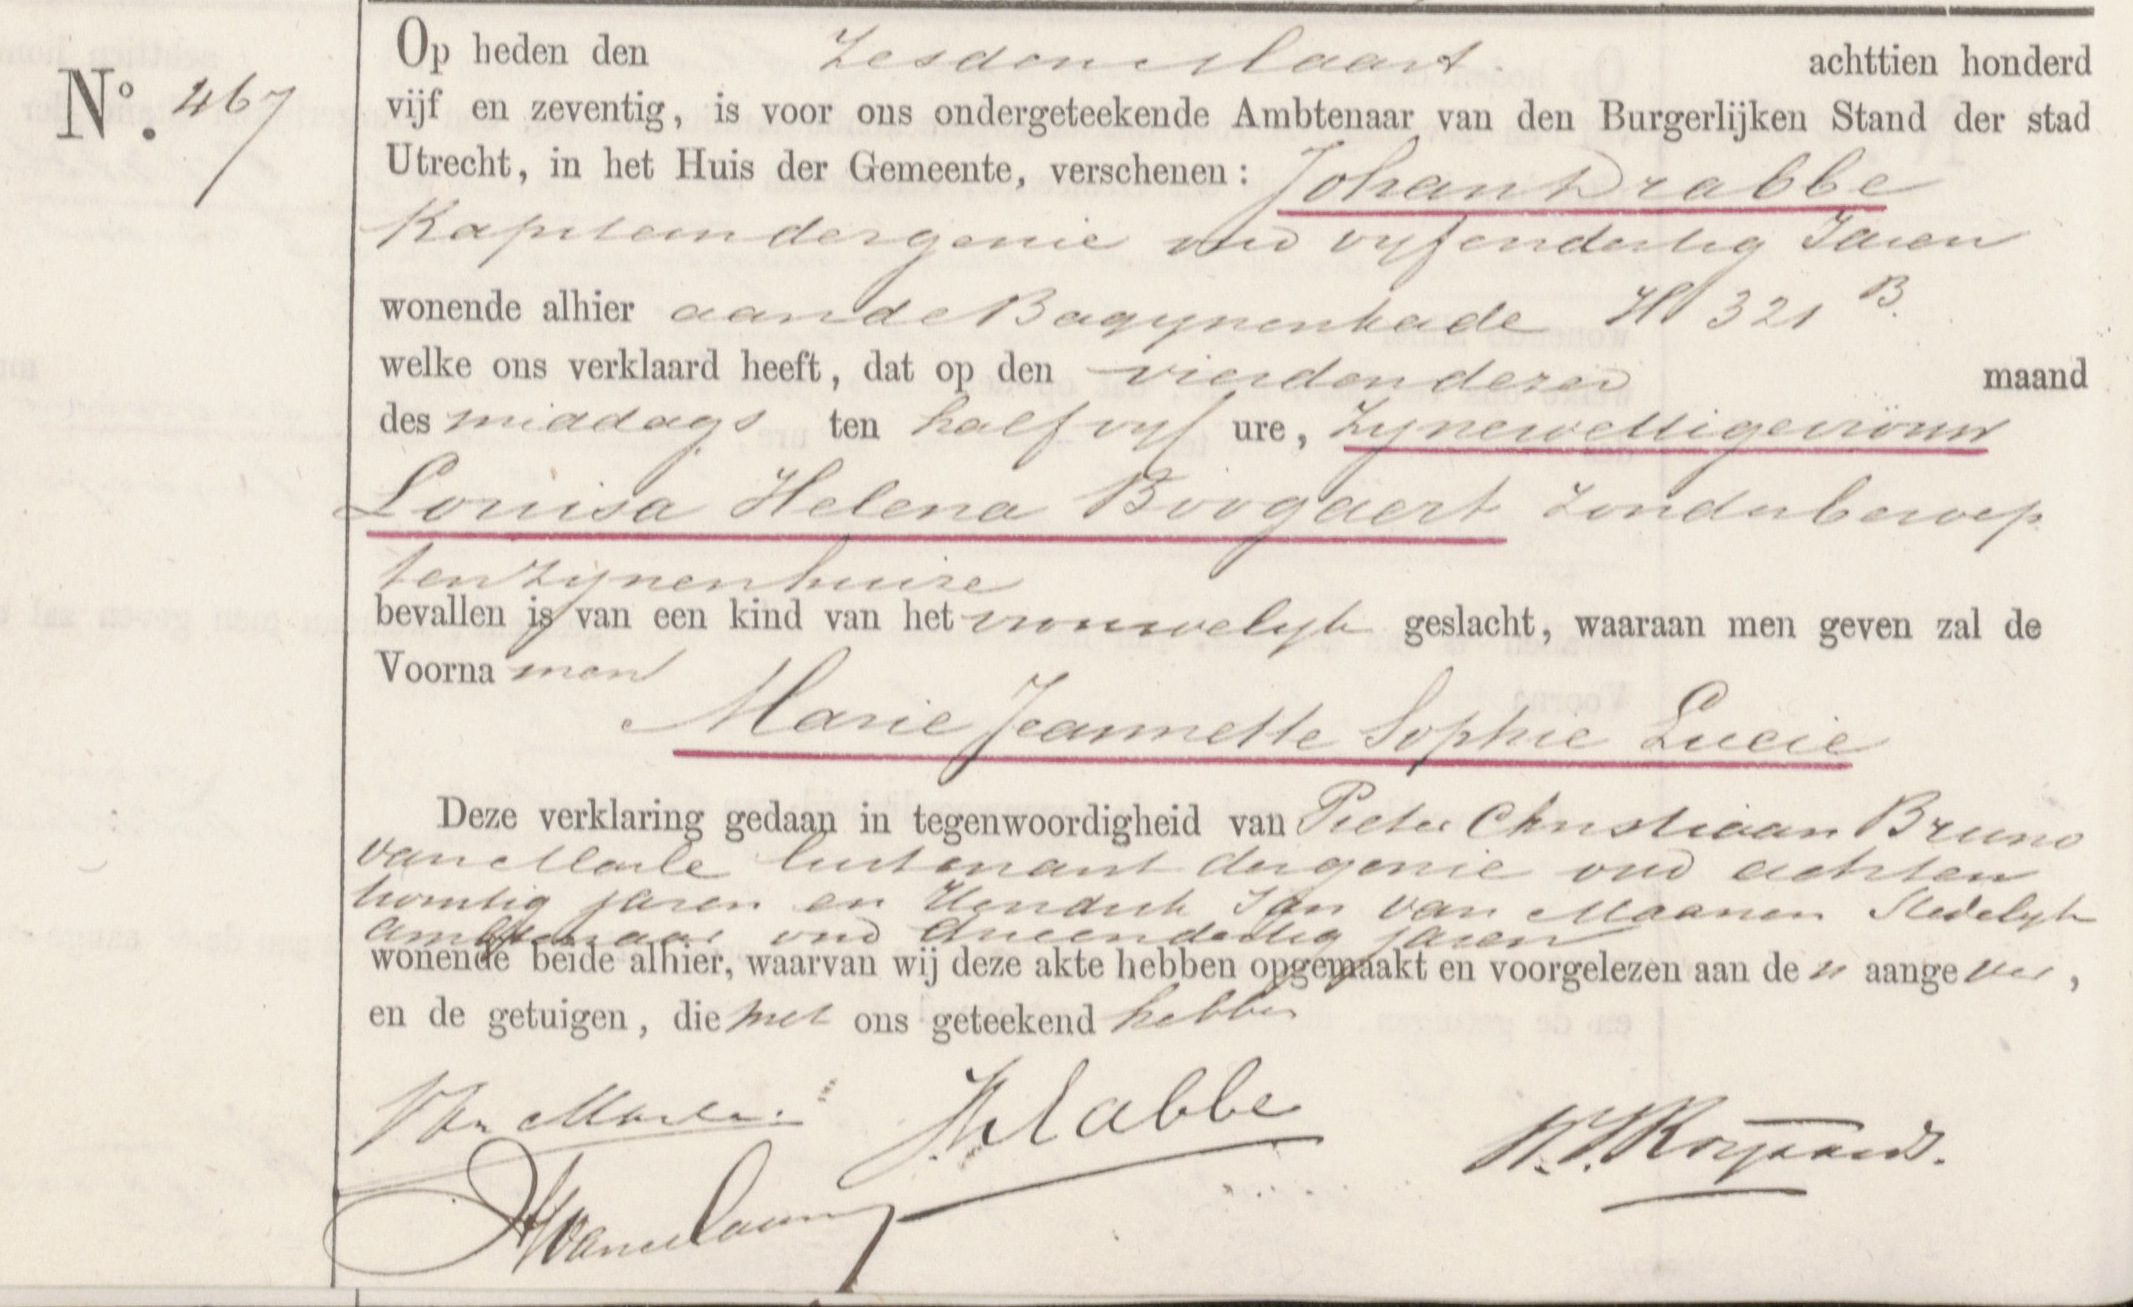 Op heden den Zesden Maart achttien honderd
No. 467
vijf en zeventig, is voor ons ondergeteekende Ambtenaar van den Burgerlijken Stand der stad
Utrecht, in het Huis der Gemeente, verschenen: Johan Drabbe
Kapitein der genie oud vyfendertig Jaren
wonende alhier aan de Bagynenkade H 321 B.
welke ons verklaard heeft, dat op den vierden dezer maand
des middags ten half vyf ure, zyne wettige vrouw
Louisa Helena Boogaert zonder beroep
ten zynen huize
bevallen is van een kind van het vrouwelyk geslacht, waaraan men geven zal de
Voornamen
Marie Jeannette Sophie Lucie
Deze verklaring gedaan in tegenwoordigheid van Pieter Christiaan Bruno
van Marle luitenant der genie oud achten
twintig jaren en Hendrik Jan van Maanen Stedelyk
ambtenaar oud drieendertig jaren
wonende beide alhier, waarvan wij deze akte hebben opgemaakt en voorgelezen aan den aangever,
en de getuigen, die met ons geteekend hebben
Van Marle. Drabbe
HJvanMaanen